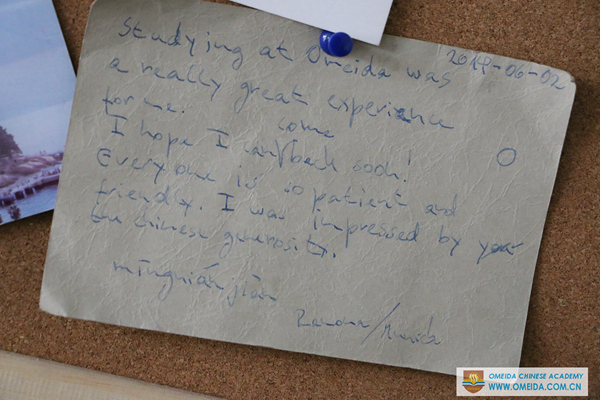 2014-06-02
Studying at Omeida was
a really great experience
for me.
I hope I can come back soon!
Everyone is so patient and
friendly. I was impressed by your
the chinese generosity.
míngnián jiàn
Ramona/
OMEIDA CHINESE ACADEMY
WWW.OMEIDA.COM.CN